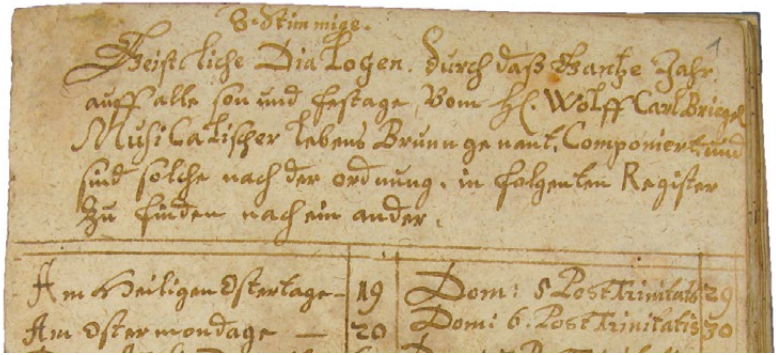 8. Stimmige.
1
Geistliche Dialogen. durch daß Gantze Jahr,
auff alle son und festage, Vom H. Wolff Carl Briegel
Musicalischer lebens Brunn genant, Componiert, und
sind solche nach der ordnung, in folgenten Register
Zu finden nach ein ander.
Am Heiligen Ostertage – 19
Dom: 5 Post Trinitatis 29
Am Ostermondage — 20
Dom: 6. Post Trinitatis 30